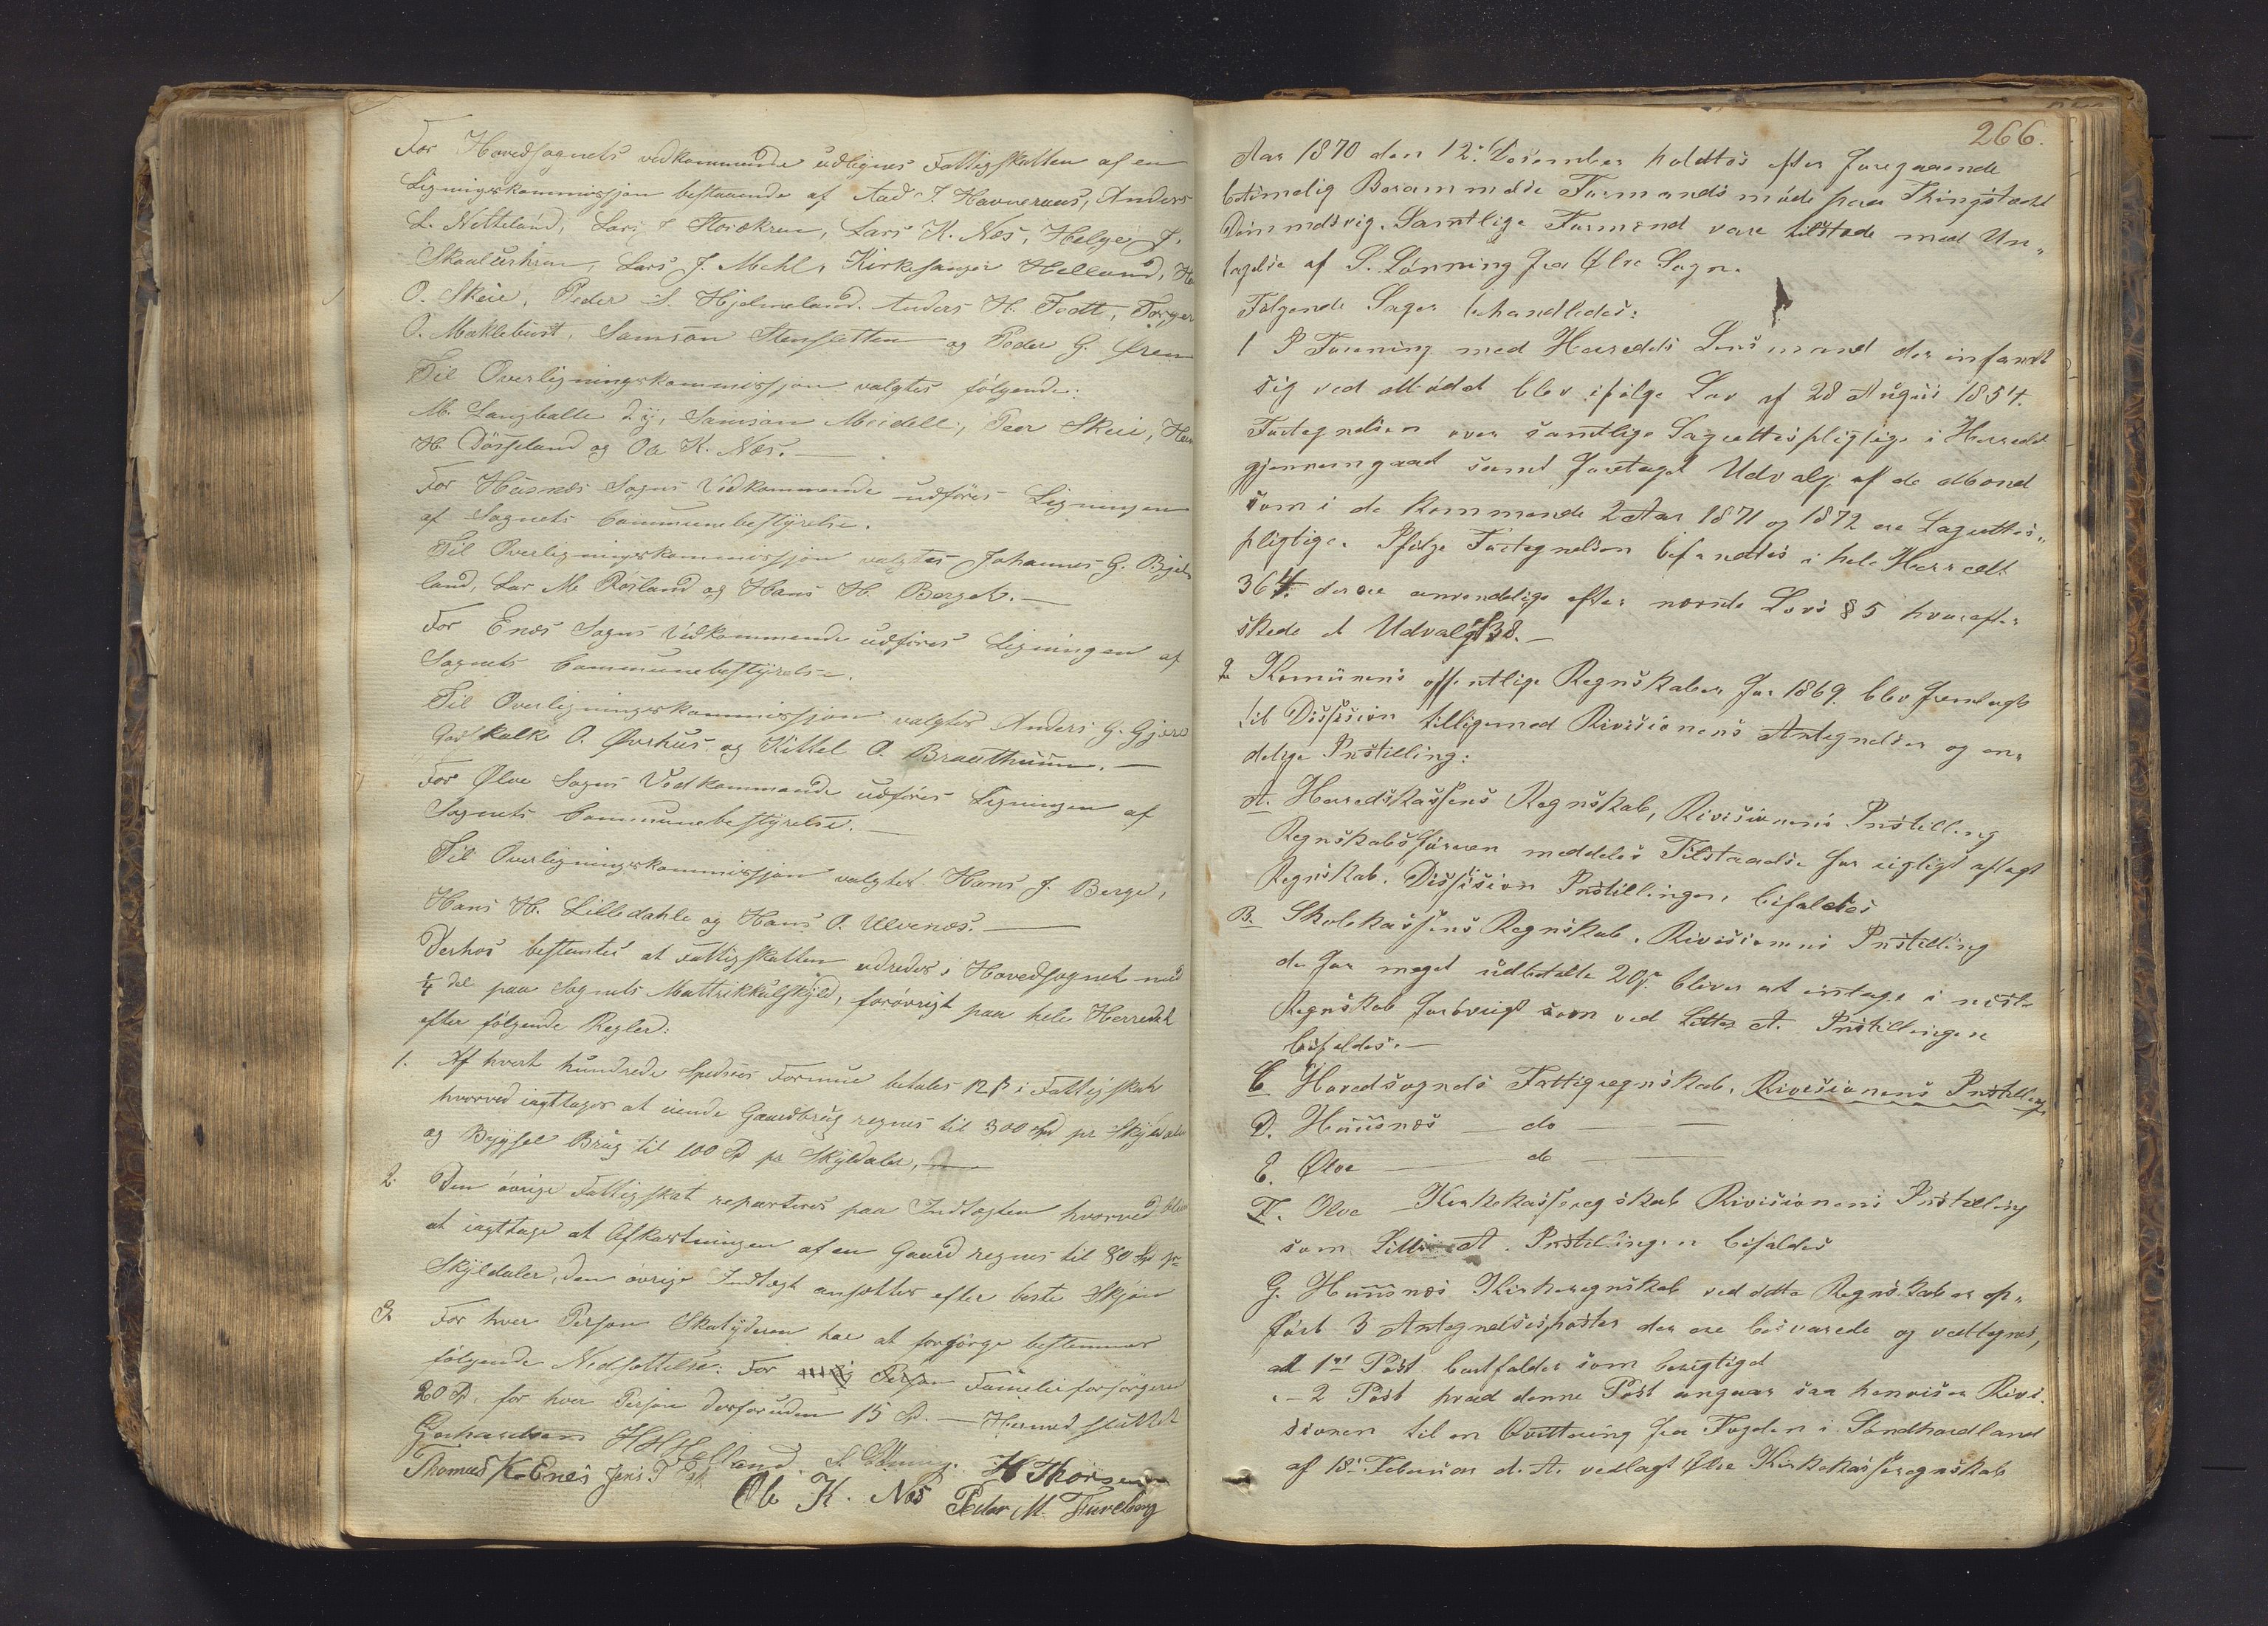 For Hovedsognets vedkommende udlignes Fattigskatten af en
Ligningskommissjon bestaaende af Aad J. Havneraas, Anders
L. Netteland, Lars J. Storækren, Lars K. Næs, Helge J.
Skaalurhren, Lars J. Mehl, Kirkesanger Helland,
O. Skeie, Peder S. Hjelmeland. Anders H. Todt, Torger
O. Mæklebust, Samson Stensletten og Peder G.
Til Overligningskommissjon valgtes følgende:
M. Langballe d. y., Samson Meidell, Peer Skeie,
H. Døsseland og Ole K. Næs. —
For Husnæs Sogns Vedkommende udføres Ligningen
af Sognets Communebestyrelse.
Til Overligningskommissjon valgtes Johannes G. Bjel-
land, Lar M. Røsland og Hans H. Berget. —
For Enæs Sogns Vedkommende udføres Ligningen af
Sognets Communebestyrelse.
Til Overligningskommissjon valgtes Anders G. Gjere
Godskalk O. Øvrhus og Kittel O. Brauthuun. —
For Ølve Sogns Vedkommende udføres Ligningen af
Sognets Communebestyrelse. —
Til Overligningskommissjon valgtes Hans J. Berge,
Hans H. Lilledahle og Hans O. Ulvenæs. —
Derhos bestemtes at Fattigskatten udredes i Hovedsognet med
1/4 del paa Sognets Mattrikkulskyld, forøvrigt paa hele Herredet
efter følgende Regler:
1. Af hvert hundrede Spedies Formue betales 12 ß i Fattigskat
hvorved iagttages at eiende Gaardbrug regnes til 300 Spd pr Skylddaler
og Bygsel Brug til 100 Spd pr Skyldaler, —
2. Den øvrige Fattigskat reparteres paa Indtægten hvorved bliver
at iagttage at Afkastningen af en Gaard regnes til 80 Spd pr
Skyldaler, den øvrige Indtægt ansættes efter beste Skjøn
3. For hver Person Skatyderen har at forsørge bestemmes
følgende Nedsættelse: For Person Familieforsørgeren
20 Spd. for hver Person desforuden 15 Spd. — Hermed sluttet
Gerhardsen HH Helland. S. Lønning. H Thorsen
Thomas K. Enes Jens T Eik Ole K. Næs Peder M. Fureberg
266.
Aar 1870 den 12te Desember holdtes efter foregaaende
betimelig Berammelse Formandsmøde paa Thingstædet
Dimmelsvig. Samtlige Formænd vare tilstæde med Un„
tagelse af S. Lønning fra Ølve Sogn.
Følgende Sager behandledes:
1 I Forening med Herredets Lensmand der infandt
sig ved Mødet blev ifølge Lov af 28 August 1854.
Fortegnelsen over samtlige Lagrettespligtige i Herredet
gjennemgaaet samt foretaget Udvalg af de Mænd
som i de kommende 2 Aar 1871 og 1872 ere Lagrettes„
pligtige. Ifølge Fortegnelsen befandtes i hele Herredet
364. der ere anvendelige efter nævnte Lovs § 5 hvorefter
skede et Udvalg af 38. —
2 Komunens offentlige Regnskaber for 1869 blev fremlagt
til Dissision tilligemed Rivisionens Antegnelser og en„
delige Instilling:
A. Herredskassens Regnskab, Rivisionens Instilling
Regnskabsføreren meddeles Tilstaaelse for rigtigt aflagt
Regnskab. Dissision Instillingen bifaldes
B. Skolekassens Regnskab. Rivisionens Instilling
de for meget udbetalte 20 ß bliver at intage i neste
Regnskab forøvrigt som ved Litter A. Instillingen
bifaldes. —
C Hovedsognets Fattigregnskab. Rivisionens Instilling
D. Huusnæs — do — —
E. Ølve — do —
F. Ølve Kirkekasseregnskab Rivisionens Instilling
som Litr A. Instillingen bifaldes
G. Huusnæs Kirkeregnskab ved dette Regnskab er op„
ført 3 Antegnelsesposter der ere besvarede og vedtegnes,
ad 1ste Post bortfalder som berigtiget
„ — 2 Post hvad denne Post angaar saa henviser Rivi„
sionen til en Qvittering fra Fogden i Søndhordland
af 18de Februar d. A. vedlagt Ølve Kirkekasseregnskab